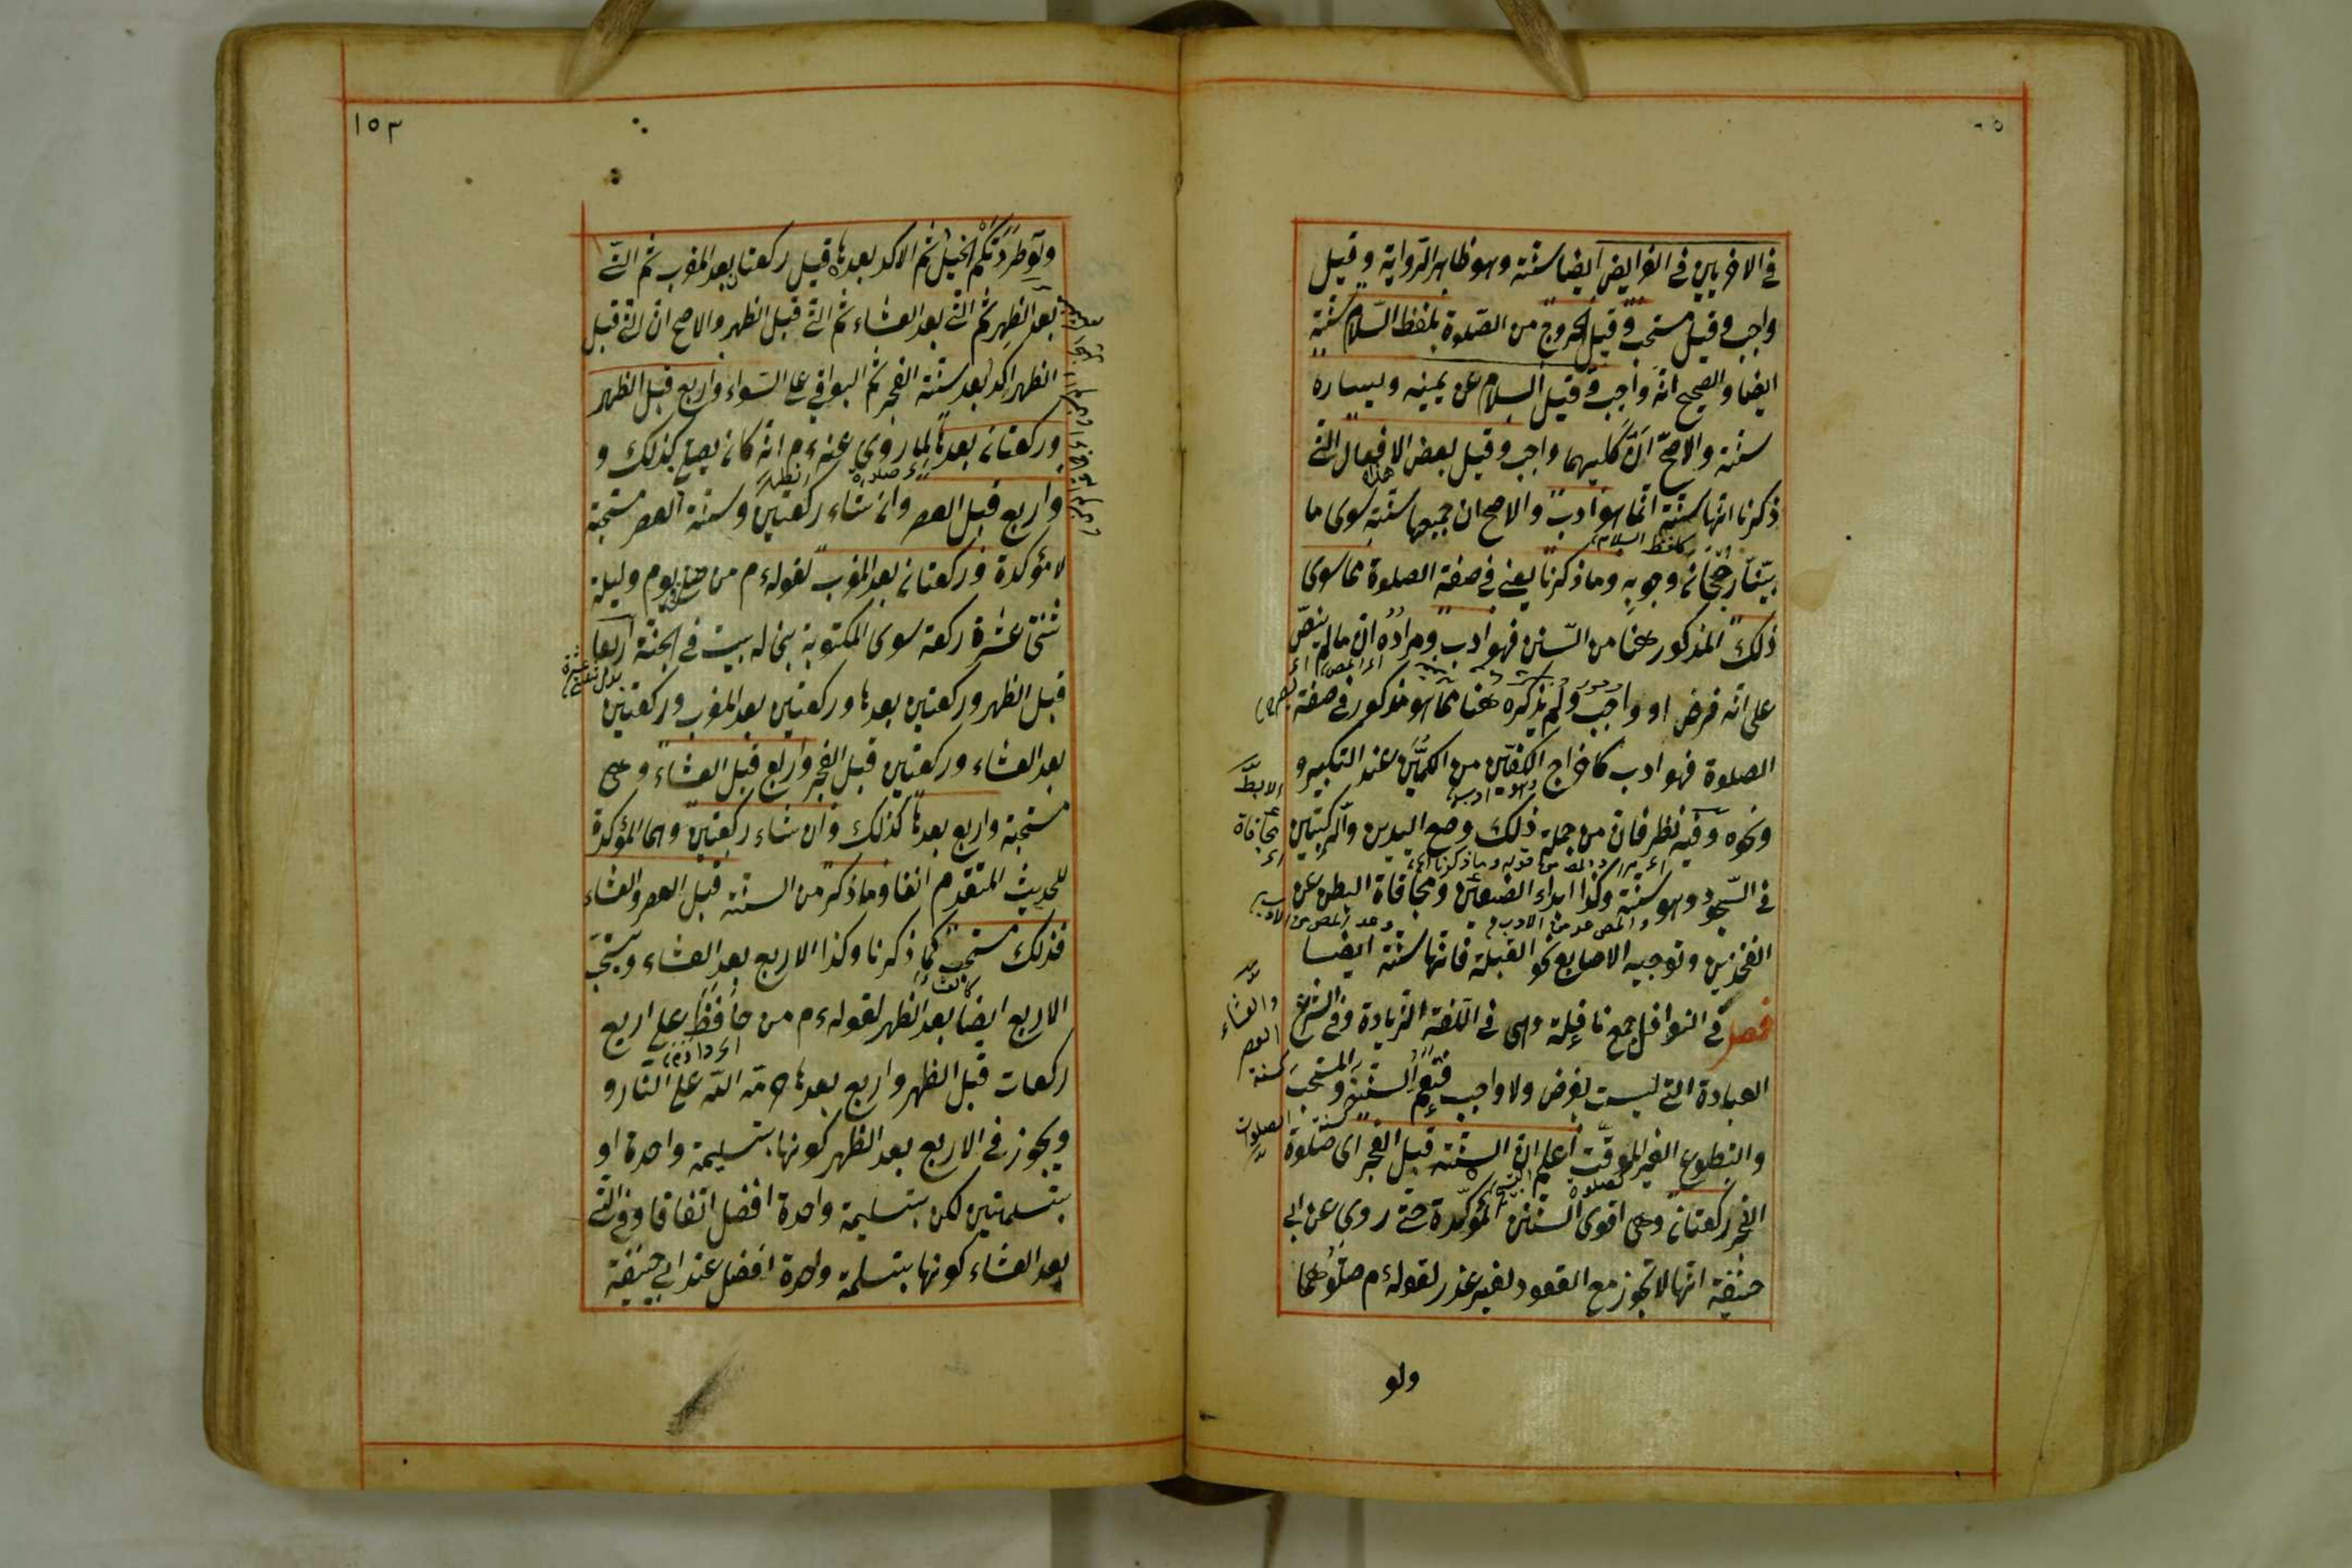 في الاخريين في الفرايض ايضا سنّة وهو ظاهر الرواية وقيل
واجب وقيل مستحب وقيل الخروج من الصّلوة بلفظ السّلام سنّة
ايضا والصحيح انّه واجب وقيل السلام عن يمينه ويساره
سنّة والاصحّ انّ كليهما واجب وقيل بعض الافعال التي
ذكرنا انّها سنّة انّما هو ادب والاصح ان جميعها سنّة سوى ما
كلفظ السلام
بيّنّا رجحان وجوبه وما ذكرنا يعني في صفة الصلوة مما سوى
ذلك المذكور هنا من السّنن فهو ادب ومراده ان ما لم ينصّ
على انّه فرض او واجب ولم يذكره هنا مما هو مذكور في صفة
الصلوة فهو ادب كاخراج الكفّين من الكمّين عند التكبير و
ونحوه وفيه نظر فانّ من جملة ذلك وضع اليدين والركبتين
في السّجود وهو سنّة وكذا ابداء الضبعين ومجافاة البطن عن
الفخذين وتوجيه الاصابع نحو القبلة فانّها سنّة ايضا
فصل في النوافل جمع نافلة وهي في اللّغة الزيادة وفي الشرع
العبادة التي ليست بفرض ولا واجب فتعم السنن والمستحب
والتطوع الغير الموقّت اعلم انّ السنّة قبل الفجر اى صلوة
الفجر ركعتان وهي اقوى السّنن المؤكّدة حتى روى عن ابي
حنيفة انّها لا تجوز مع القعود لغير عذر لقوله ءم صلّوهما
ولو
١٥٣
ولو طردتكم الخيل ثم الاكد بعدها قيل ركعتا بعد المغرب ثم التي
بعد الظهر ثم التي بعد العشاء ثم التي قبل الظهر والاصح ان التي قبل
الظهر اكد بعد سنّة الفجر ثم البواقي على السّواء واربع قبل الظهر
وركعتان بعدها لما روى عنه ءم انّه كان يصلي كذلك و
واربع قبل العصر وان شاء ركعتين وسنّة العصر مستحبة
لا مؤكدة وركعتان بعد المغرب لقوله ءم من صلى يوم وليلة
ثنتى عشرة ركعة سوى المكتوبة بني له بيت في الجنّة اربعا
قبل الظهر وركعتين بعدها وركعتين بعد المغرب وركعتين
بعد العشاء وركعتين قبل الفجر واربع قبل العشاء وهي
مستحبة واربع بعدها كذلك وان شاء ركعتين وهما المؤكدة
للحديث المتقدم انفا وما ذكر من السنّة قبل العصر والعشاء
فذلك مستحب كما ذكرنا وكذا الاربع بعد العشاء ويستحبّ
الاربع ايضا بعد الظهر لقوله ءم من حافظ على اربع
ركعات قبل الظهر واربع بعدها حرّمه اللّه على النّار و
ويجوز في الاربع بعد الظهر كونها بتسليمة واحدة او
بتسلمتين لكن بتسليمة واحدة افضل اتفاقا وفي التي
بعد العشاء كونها بتسلمة واحدة افضل عند ابي حنيفة